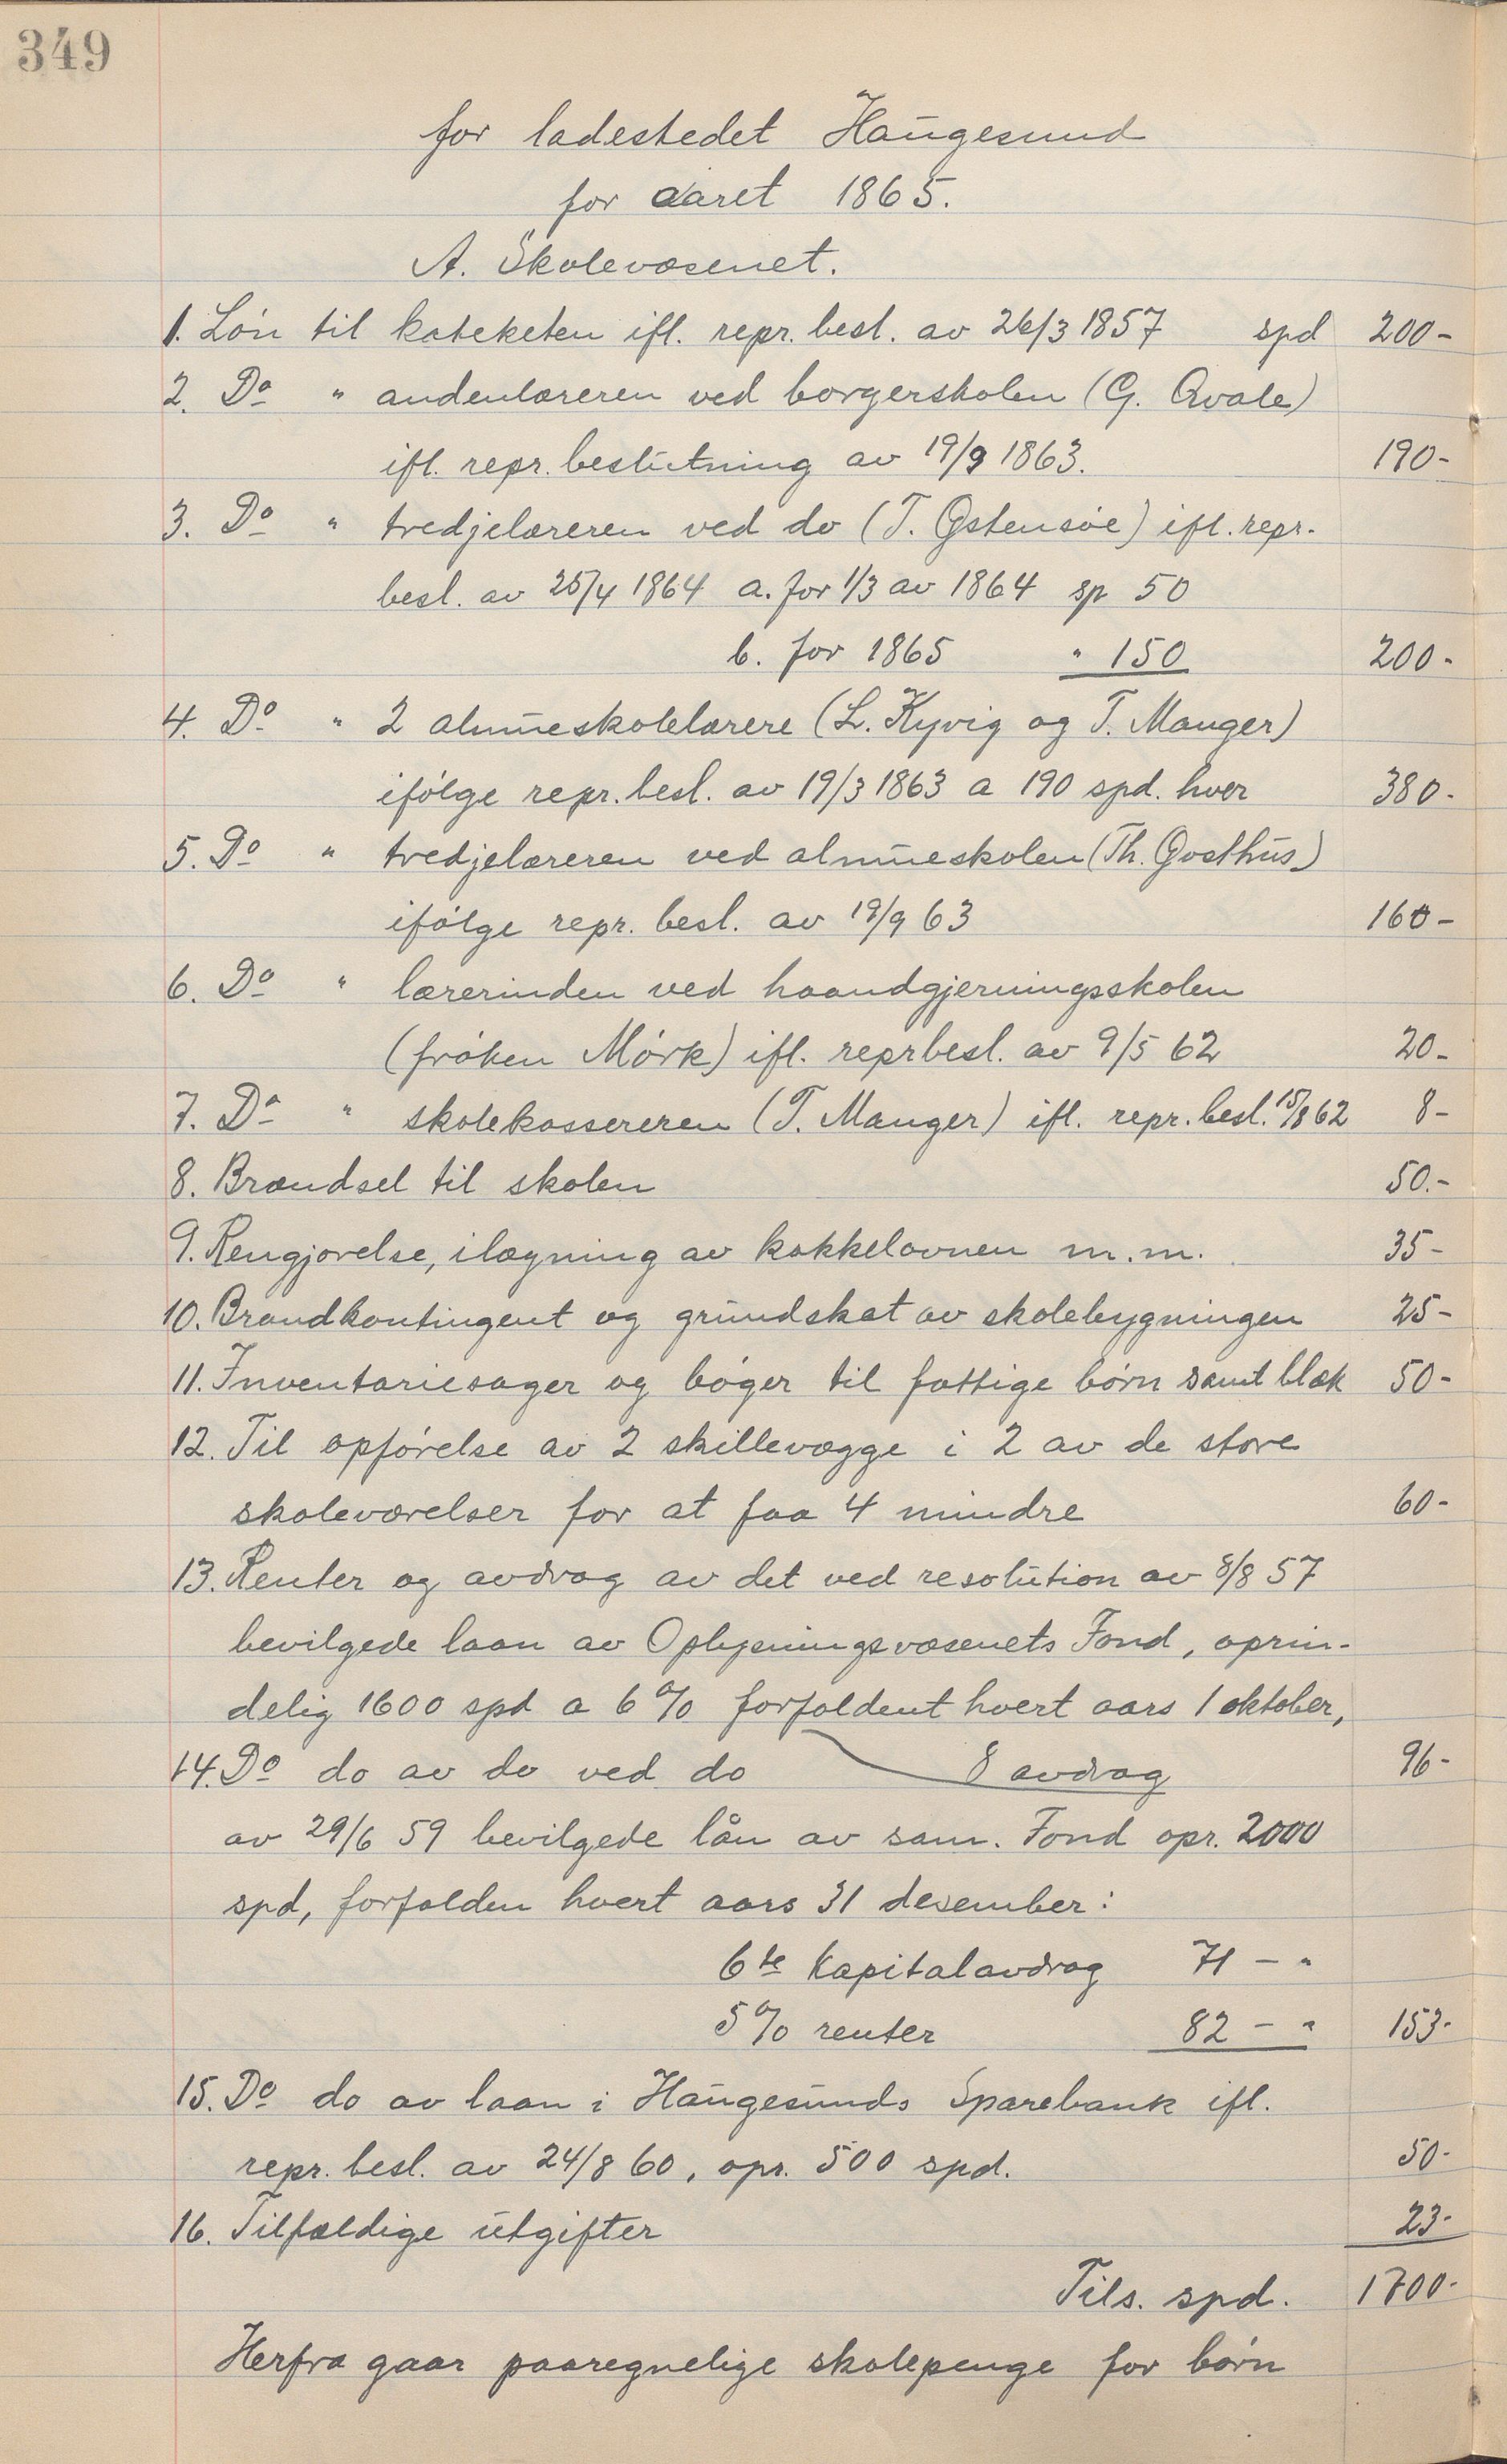 349
for ladestedet Haugesund
for aaret 1865.
A. Skolevæsenet.
1. Løn til kateketen ifl. repr. besl. av 26/3 1857 spd 200-
2. Do " andenlæreren ved borgerskolen (G. Qvale)
ifl. repr. beslutning av 19/9 1863. 190-
3. Do " tredjelæreren ved do (T. Østensøe) ifl. repr.
besl. av 25/4 1864 a. for 1/3 av 1864 sp 50
b. for 1865 " 150 200-
4. Do " 2 almueskolelærere (L. Kyvig og T. Mauger)
ifølge repr. besl. av 19/3 1863 a 190 spd. hver 380-
5. Do " tredjelæreren ved almueskolen (Th. Gosthus)
ifølge repr. besl. av 19/9 63 160-
6. Do " lærerinden ved haandgjerningsskolen
(frøken Mørk) ifl. repr besl. av 9/5 62 20-
7. Do " skolekassereren (T. Mauger) ifl. repr. besl. 15/8 62 8-
8. Brændsel til skolen 50.-
9. Rengjørelse, ilægning av kakkelovnen m.m. 35-
10. Brandkontingent og grundskat av skolebygningen 25-
11. Inventariesager og bøger til fattige børn samt blæk 50-
12. Til opførelse av 2 skillevægge i 2 av de store
skoleværelser for at faa 4 mindre 60-
13. Renter og avdrag av det ved resolution av 8/8 57
bevilgede laan av Oplysningsvæsenets Fond, oprin-
delig 1600 spd a 6% forfaldent hvert aars 1 oktober,
8 avdrag 96-
14. Do do av do ved do
av 29/6 59 bevilgede lån av sam. Fond opr. 2000
spd, forfalden hvert aars 31 desember:
6te Kapitalavdrag 71 - "
5% renter 82 - " 153-
15. Do do av laan i Haugesunds Sparebank ifl.
repr. besl. av 24/8 60, opr. 500 spd. 50-
16. Tilfældige utgifter 23-
Tils. spd. 1700-
Herfra gaar paaregnelige skolepenge for børn